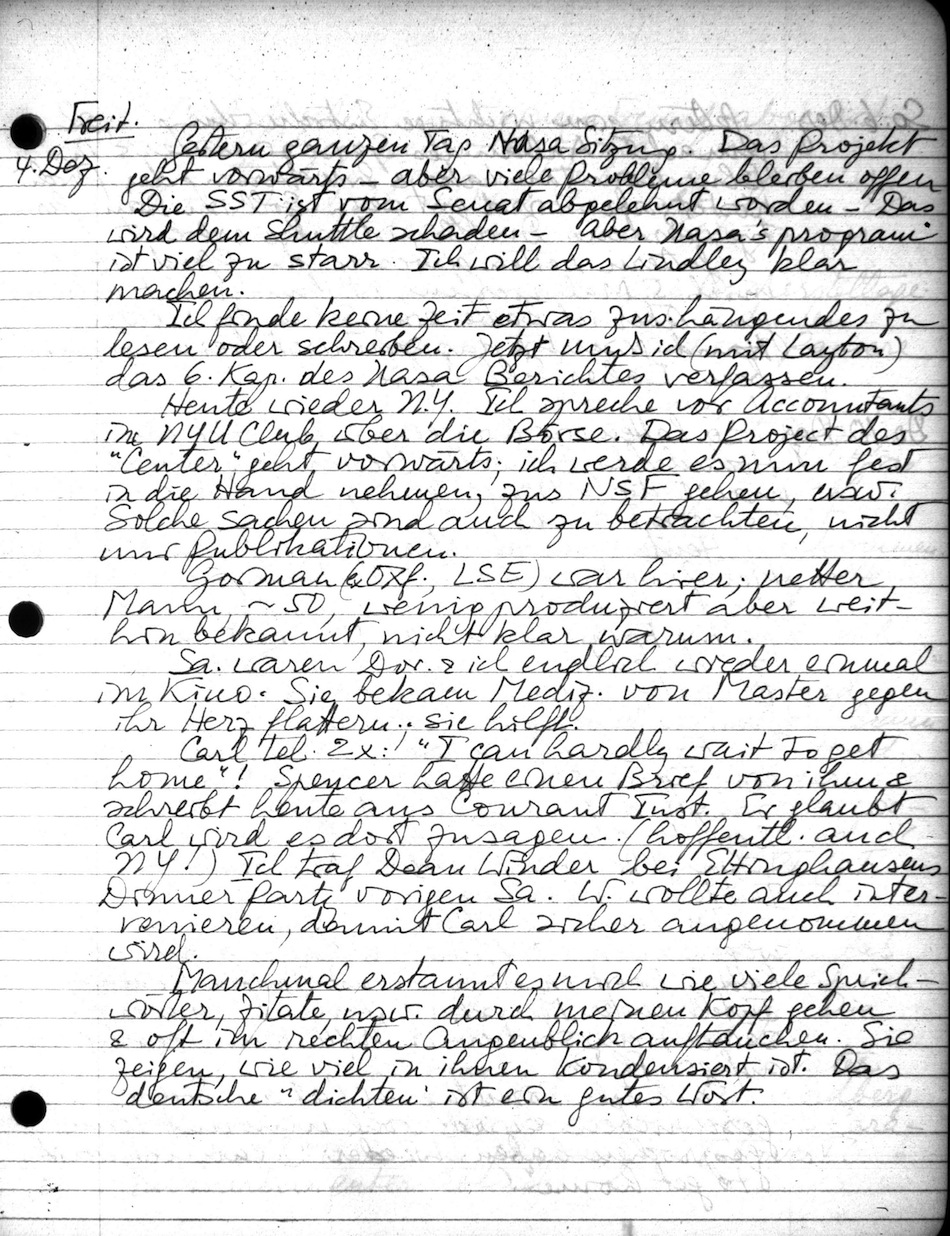 Freit.
4. Dez. Gestern ganzen Tag Nasa Sitzung. Das Projekt
geht vorwärts – aber viele Probleme bleiben offen
Die SST ist vom Senat abgelehnt worden – Das
wird dem Shuttle schaden – aber Nasa's program
ist viel zu starr. Ich will das Lindley klar
machen.
Ich finde keine Zeit etwas zus.hängendes zu
lesen oder schreiben. Jetzt muss ich (mit Layton)
das 6. Kap. des Nasa Berichtes verfassen.
Heute wieder N.Y. Ich spreche vor Accountants
im NYU Club über die Börse. Das Project des
"Center" geht vorwärts; ich werde es nun fest
in die Hand nehmen, zus NSF gehen, usw.
Solche Sachen sind auch zu betrachten, nicht
nur Publikationen.
Gorman (Oxf., LSE) war hier; netter
Mann, ~50, wenig produziert aber weit-
hin bekannt, nicht klar warum.
Sa. waren Dor. & ich endlich wieder einmal
im Kino. Sie bekam Mediz. von Master gegen
ihr Herzflattern; sie hilft.
Carl tel. 2x: "I can hardly wait to get
home"! Spencer hatte einen Brief von ihm &
schreibt heute ans Courant Inst. Er glaubt
Carl wird es dort zusagen. (hoffentl. auch
NY!) Ich traf Dean Winder bei Ettinghausens
Dinner Party vorigen Sa. W. wollte auch inter-
venieren, damit Carl sicher angenommen
wird.
Manchmal erstaunt es mich wie viele Sprich-
wörter, Zitate, usw. durch meinen Kopf gehen
& oft im rechten Augenblick auftauchen. Sie
zeigen, wie viel in ihnen kondensiert ist. Das
deutsche "dichten" ist ein gutes Wort.